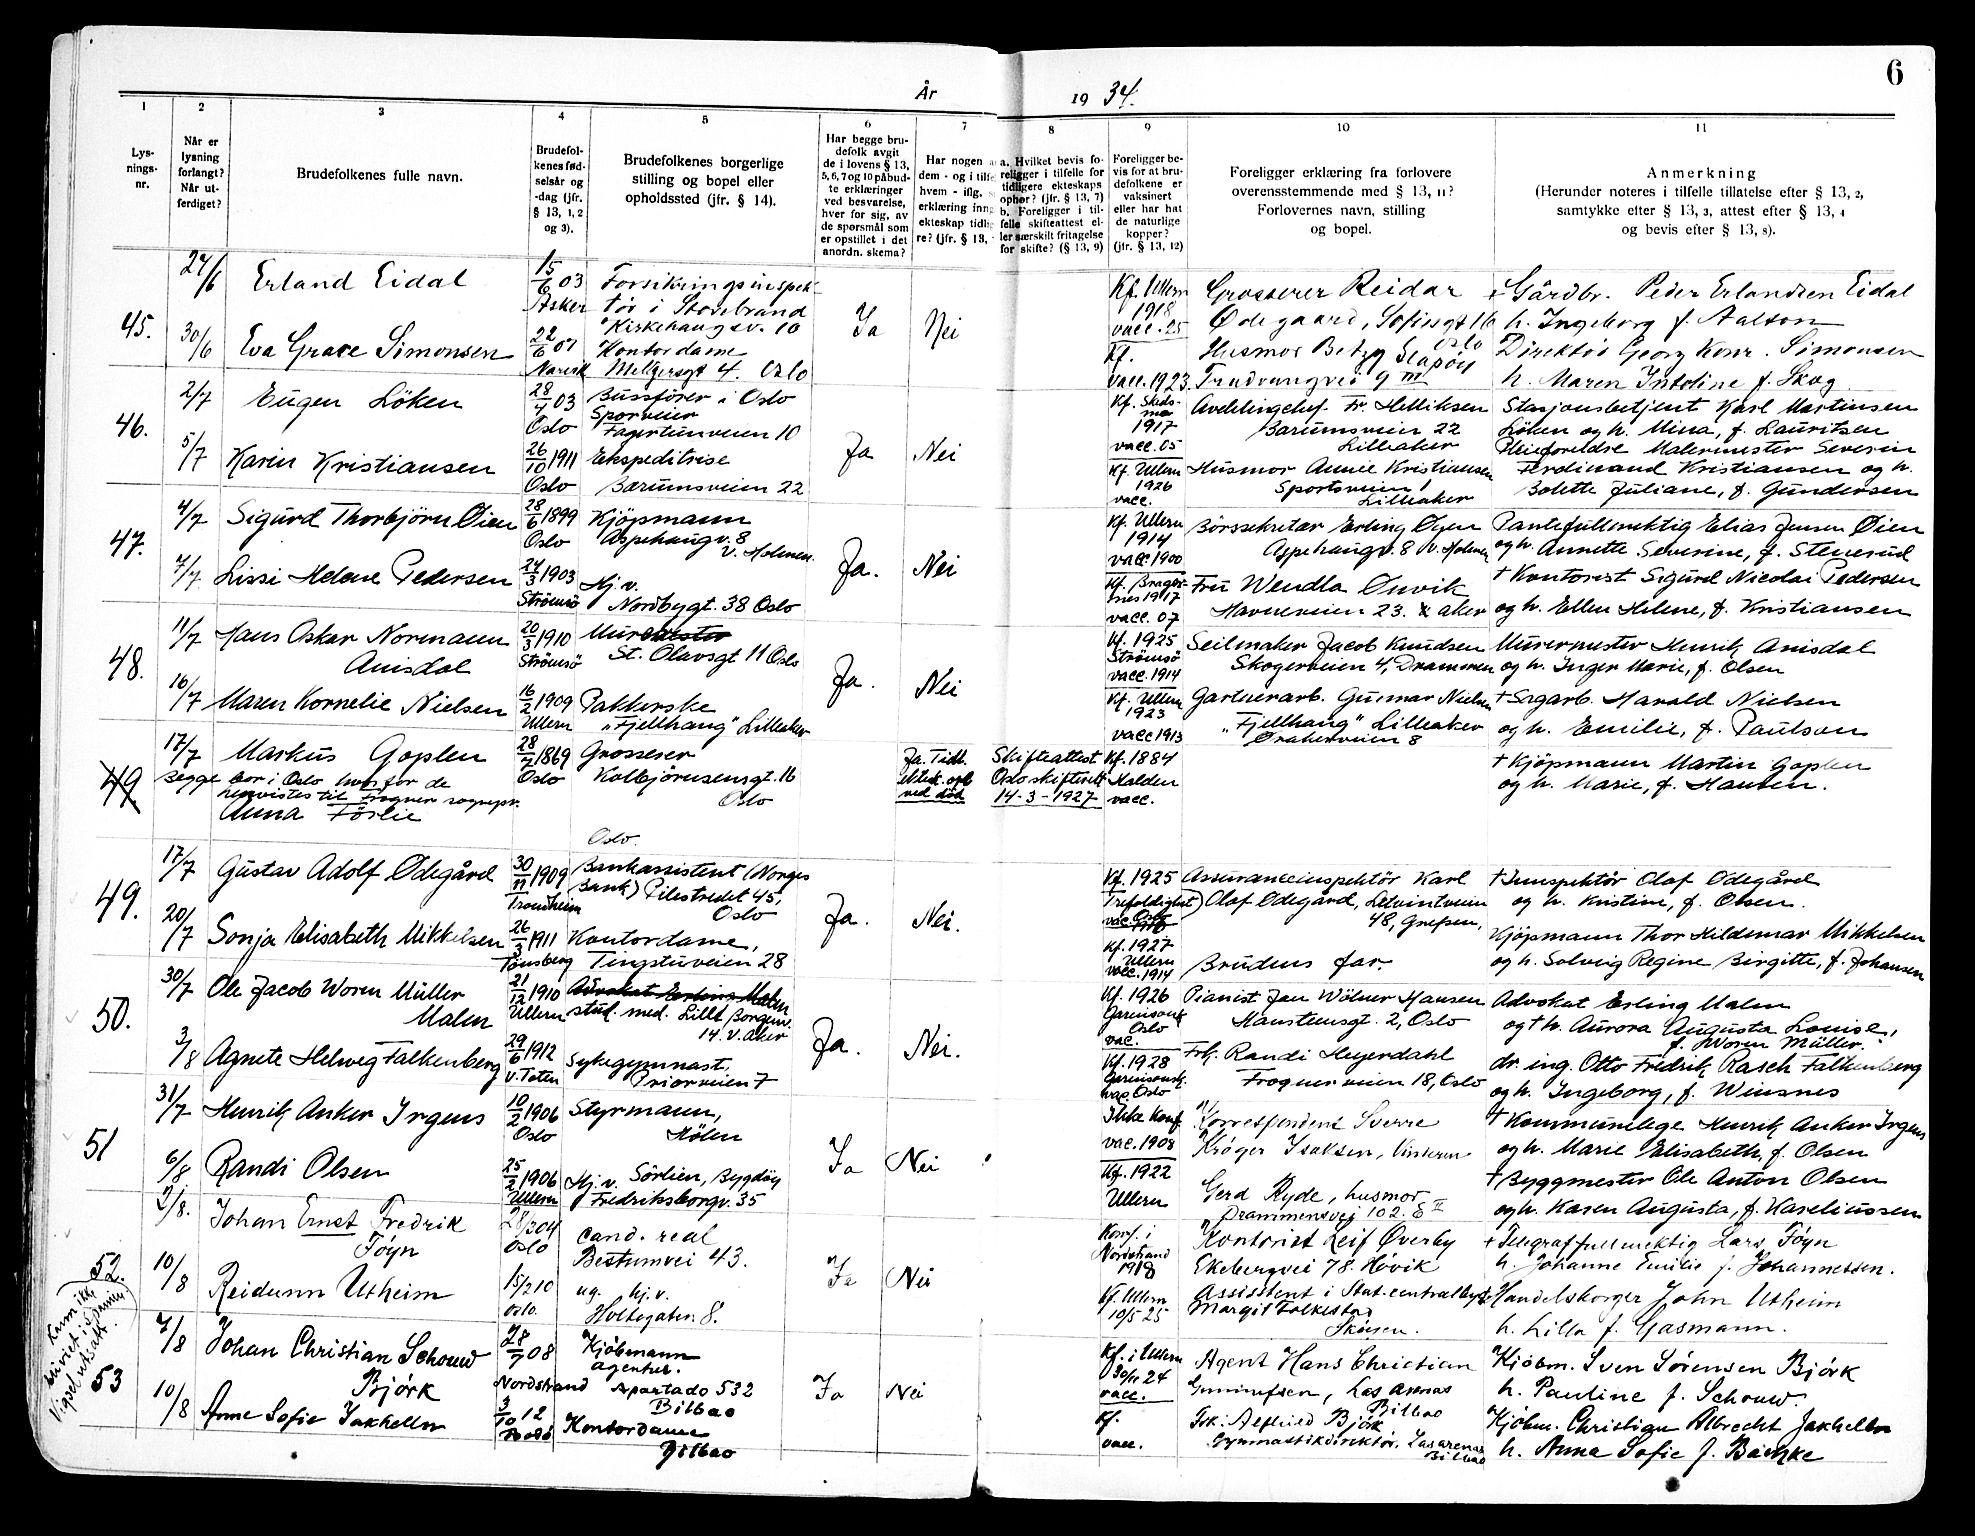 6
År
19 34.
1
2
3
4
5
6
7
8
9
10
11
Lys-
nings-
nr.
Når er
lysning
forlangt?
Når ut-
ferdiget?
Brudefolkenes fulle navn.
Brudefol-
kenes fød-
selsår og
-dag (jfr.
§ 13, 1, 2
og 3).
Brudefolkenes borgerlige
stilling og bopel eller
opholdssted (jfr. § 14).
Har begge bru-
defolk avgit
de i lovens § 13,
5, 6, 7 og 10 påbud-
te erklæringer
ved besvarelse,
hver for sig, av
de spørsmål som
er opstillet i det
anordn. skema?
Har nogen a
dem - og i tilfe
hvem - iflg.
erklæring inng
ekteskap tidlig
re? (jfr. § 13,
a. Hvilket bevis fo-
religger i tilfelle for
tidligere ekteskaps
ophør? (jfr. § 13, 7)
b. Foreligger i til-
felle skifteattest el-
ler særskilt fritagelse
for skifte? (§ 13, 9)
Foreligger be-
vis for at bru-
defolkene er
vaksinert
eller har hat
de naturlige
kopper?
(jfr. § 13, 12)
Foreligger erklæring fra forlovere
overensstemmende med § 13, 11?
Forlovernes navn, stilling
og bopel.
Anmerkning
(Herunder noteres i tilfelle tillatelse efter § 13, 2,
samtykke efter § 13, 3, attest efter § 13, 4
og bevis efter § 13, 8).
45.
27/6
Erland Eidal
15/6 03
Asker
Forsikringsinspek-
tør i Storebrand
Kirkehaugsv. 10
Ja
Nei
Kf. Ullern
1918
vacc. 25
Grosserer Reidar
Ødegaard, Sofiesgt 16
Oslo
+ Gårdbr. Peder Erlandsen Eidal
h. Ingeborg f. Aalton
30/6
Eva Grace Simonsen
22/6 07
Narvik
Kontordame
Meltzersgt 4. Oslo
Kf.
vacc. 1923.
Husmor Betzy Slapøy
Trudvangvei 9 III
Direktør Georg Konr. Simonsen
h. Maren Intoline f. Skog
46.
2/7
Eugen Löken
28/4 03
Oslo
Bussfører i Oslo
Sporveier
Fagertunveien 10
Ja
Nei
Kf. Skeds-
mo
1917
vacc. 05
Avdelingchef. Fr. Helliksen
Bærumsveien 22
Lilleaker
Stasjonsbetjent Karl Martinsen
Löken og h. Mina, f. Lauritsen
5/7
Karin Kristiansen
26/10 1911
Oslo
Ekspeditrise
Bærumsveien 22
Kf. Ullern
1926
vacc.
Husmor Annie Kristiansen
Sportsveien 1
Lilleaker
Pleieforeldre Malermester Severin
Ferdinand Kristiansen og h.
Bolette Juliane, f. Gundersen
47.
4/7
Sigurd Thorbjörn Øien
28/6 1899
Oslo
Kjöpmann
Aspehaugv. 8
V. Holmen.
Ja.
Nei
Kf. Ullern
1914
vacc 1900
Börssekretær Erling Øyen
Aspehaugv. 8 V. Holmen
Pantefullmektig Elias Jensen Øien
og h. Annette Severine, f. Stenerud
7/7
Lissi Helene Pedersen
24/3 1903
Strömsö
Hj. v.
Nordbygt. 38 Oslo
Kf. Brager-
nes 1917
vacc. 07
Fru Wendla Ønvik
Havneveien 23. V aker
+ Kontorist Sigurd Nicolai Pedersen
og h. Ellen Helene, f. Kristiansen
48.
11/7
Hans Oskar Normann
Amsdal
20/3 1910
Strömsö
Murermester
St. Olavsgt 11 Oslo
Ja.
Nei
Kf. 1925
Strömsö
vacc. 1914
Seilmaker Jacob Knudsen
Skogerveien 4, Drammen
Murermester Henrik Amsdal
og h. Inger Marie, f. Olsen
16/7
Maren Kornelie Nielsen
16/2 1909
Ullern
Pakkerske
„Fjellhaug" Lilleaker
Kf. Ullern
1923
vacc 1913
Gartnerarb. Gunnar Nielsen
„Fjellhaug" Lilleaker
Ørakerveien 8
+ Sagarb. Harald Nielsen
og h. Emilie, f. Paulson
49
17/7
Markus Goplen
28/7 1869
Oslo
Grosserer
Kolbjörnsensgt. 16
Oslo
Ja. Tidl.
ektesk. opl.
ved död
Skifteattest
Oslo skifterett
14-3-1927
Kf. 1884
Halden
vacc.
+ Kjöpmann Martin Goplen
og h. Marie, f. Hansen.
Begge bor i Oslo hvorfor de
henvistes til Frogner sognepr.
Anna Förlie
Oslo.
49.
17/7
Gustav Adolf Ødegård
30/11 1909
Trondheim
Bankassistent (Norges
Bank) Pilestredet 45,
Oslo
Ja.
Nei.
Kf. 1925
Trefoldighet
Oslo
vac. 1910
Assuranceinspektör Karl
Olaf Ødegård, Letvintveien
48, Grefsen,
+ Innspektör Olaf Ødegård
og h. Kristine, f. Olsen.
20/7
Sonja Elisabeth Mikkelsen
26/3 1911
Tönsberg
Kontordame,
Tingstuveien 28
Kf. 1927
Ullern
vacc. 1914
Brudens far.
Kjöpmann Thor Hildemar Mikkelsen
og h. Solveig Regine Birgitte, f. Johansen
50.
30/7
Ole Jacob Woren Müller
Malm
21/12 1910
Ullern
Advokat Erling Malm
stud. med. Lille Borgenv.
14. V. Aker
Ja.
Nei.
Kf. 1926
Garnisonsk
Oslo
vac.
Pianist Jan Wölner Hansen
Hansteensgt. 2, Oslo
Advokat Erling Malm
og + h. Aurora Augusta Louise,
f. Woren Müller.
3/8
Agnete Helweg Falkenberg
29/6 1912
V. Toten
Sykegymnast,
Priorveien 7
Kf. 1928
Garnisonsk.
vac Oslo
Frk. Randi Heyerdahl
Frognerveien 18, Oslo
dr. ing. Otto Fredrik Rasch Falkenberg
og h. Ingeborg, f. Weinsnes
51
31/7
Henrik Anker Irgens
10/2 1906
Oslo
Styrmann,
Hölen
Ja
Nei
Ikke konf
vac. 1908
Korrespondent Sverre
Krøger Isaksen, Vinderen
+ Kommunelege Henrik Anker Irgens
og h. Marie Elisabeth, f. Olsen
6/8
Randi Olsen
25/2 1906
Ullern
Hj. v. Sörlien, Bygdöy
Fredriksborgv. 35
Kf. 1922
Ullern
Gerd Ryde, husmor
Drammensvei 102. E II
+ Byggmester Ole Anton Olsen
og h. Karen Augusta, f. Kareliussen
52.
2/8.
Johan Ernst Fredrik
Föyn
28/2 04
Oslo
cand. real
Bestumvei 43.
Ja
Nei
Konf. i
Nordstrand
1918
Kontorist Leif Øverby
Ekebergvei 78. Høvik
+ Telegraffullmektig Lars Föyn
h. Johanne Emilie f. Johannessen.
10/8
Reidunn Utheim
15/2 10
Oslo.
ug. hj. v.
Holtegaten 8.
Kf. Ullern
10/5 25
Assistent i Stat. centralbyrå
Margit Folkestad
Skøyen.
Handelsborger John Utheim
h. Lilla f. Gasmann.
Kun ikke
blir viet i Spanien.
Vigsel utsatt.
53
7/8
Johan Christian Schouw
Bjørk
28/7 08
Nordstrand
Kjöbmann
agentur.
Apartado 532
Bilbao
Ja
Nei
Kf. i Ullern
30/11 24
vacc.
Agent Hans Christian
Gummefsen, Las Arenas
Bilbao
Kjöbm. Sven Sørensen Bjørk
h. Pauline f. Schouw.
10/8
Anne Sofie Jakhelln
3/10 12
Bodö
Kontordame
Bilbao
Kf.
vacc.
Frk. Alfhild Bjørk
Gymnastikdirektör. Las Arenas
Bilbao
Kjöbm. Christian Albrecht Jakhelln
h. Anna Sofie f. Bachke